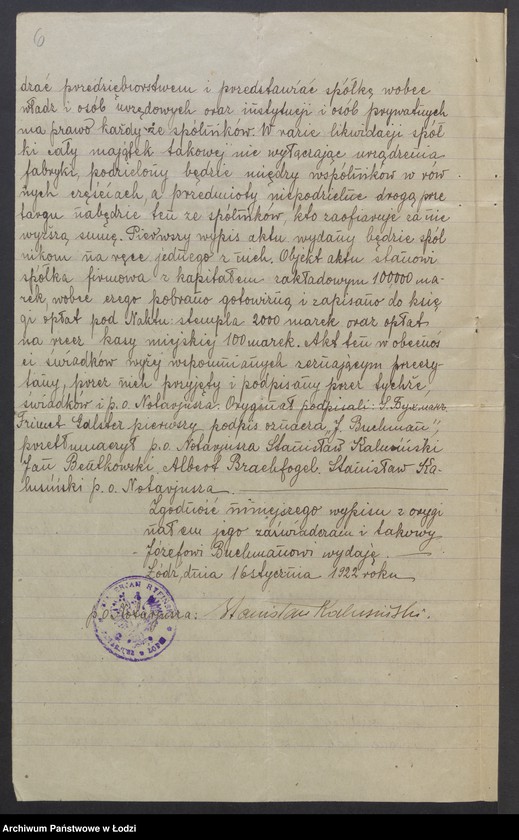 6
dzać przedsiębiorstwem i przedstawiać spółkę wobec
władz i osób urzędowych oraz instytucji i osób prywatnych
ma prawo każdy ze spólników. W razie likwidacji spół
ki cały majątek takowej nie wyłączając urządzenia
fabryki, podzielony będzie między wspólników w rów
nych częściach, a przedmioty niepodzielne drogą prze
targu nabędzie ten ze spólników, kto zaofiaruje za nie
wyższą sumę. Pierwszy wypis aktu wydany będzie spól
nikom na ręce jednego z nich. Objekt aktu stanowi
spółka firmowa z kapitałem zakładowym 100000 ma-
rek, wobec czego pobrano gotowizną i zapisano do księ
gi opłat pod № aktu: stempla 2000 marek oraz opłat
na rzecz kasy miejskiej 100 marek. Akt ten w obecnoś
ci świadków wyżej wspomnianych zeznającym przeczy-
tany, przez nich przyjęty i podpisany przez tychże,
świadków i p. o. Notarjusza. Oryginał podpisali: J. Бухманъ
Galster pierwszy podpis oznacza „J. Buchman",
przetłumaczył p. o. Notarjusza Stanisław Kałusiński
Jan Bentkowski, Albert Brachfogel. Stanisław Ka-
łusiński p. o. Notarjusza.
Zgodność niniejszego wypisu z orygi
nałem jego zaświadczam i takowy
Józefowi Buchmanowi wydaję.
Łódź, dnia 16 stycznia 1922 roku
p. o. Notarjusza: Stanisław Kałusiński.
Archiwum Państwowe w Łodzi